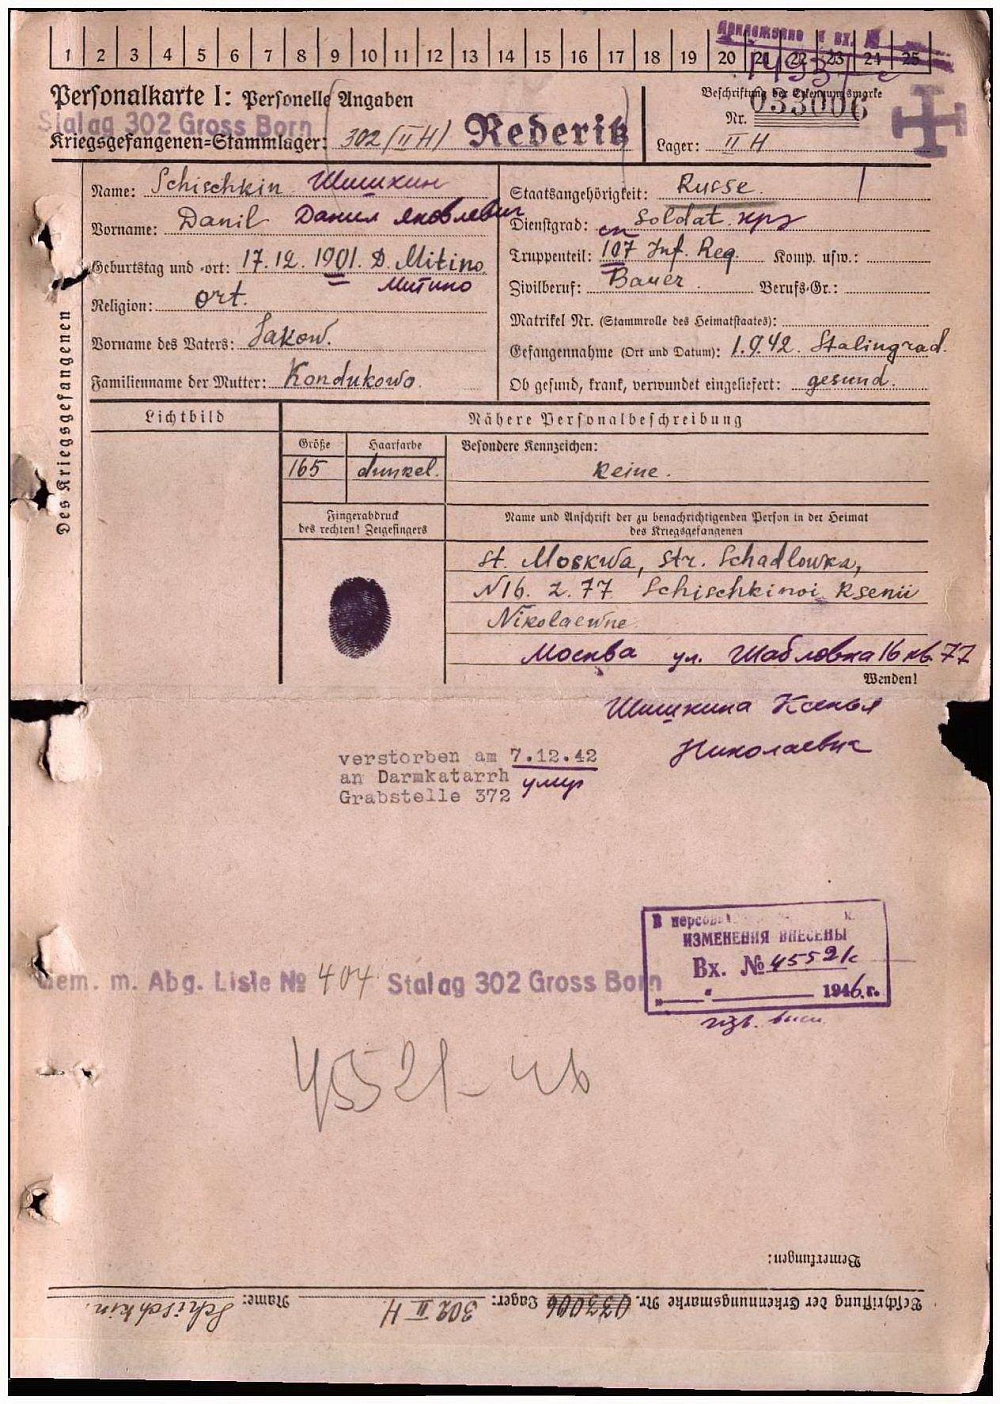 1 2 3 4 5 6 7 8 9 10 11 12 13 14 15 16 17 18 19 20 21 22 23 24 25
Personalkarte I: Personelle Angaben
Beschriftung der Erkennungsmarke
Stalag 302 Gross Born
Nr. 033006
Kriegsgefangenen-Stammlager: 302 (II H) Rederitz
Lager: II H
Des Kriegsgefangenen
Name: Schischkin Шишкин
Vorname: Danil Данил Яковлевич
Geburtstag und -ort: 17.12.1901. D. Mitino
Митино
Religion: ort.
Vorname des Vaters: Jakow.
Familienname der Mutter: Kondukowo.
Staatsangehörigkeit: Russe.
Dienstgrad: Soldat. крз
Truppenteil: 107 Inf. Reg. Komp. usw.:
Zivilberuf: Bauer Berufs-Gr.:
Matrikel Nr. (Stammrolle des Heimatstaates):
Gefangennahme (Ort und Datum): 1.9.42. Stalingrad.
Ob gesund, krank, verwundet eingeliefert: gesund.
Lichtbild
Nähere Personalbeschreibung
Größe Haarfarbe Besondere Kennzeichen:
165 dunkel. keine.
Fingerabdruck
des rechten! Zeigefingers
Name und Anschrift der zu benachrichtigenden Person in der Heimat
des Kriegsgefangenen
St. Moskwa, str. Schadlowka,
N16. z. 77 Schischkinoi Ksenii
Nikolaewne
Москва ул. Шабловка 16 кв. 77
Wenden!
Шишкина Ксенья
Николаевна
verstorben am 7.12.42
an Darmkatarrh умер
Grabstelle 372
ИЗМЕНЕНИЯ ВНЕСЕНЫ
Вх. № 45521с
1946 г.
Gem. m. Abg. Liste № 404 Stalag 302 Gross Born
45521-
Bemerkungen:
Beschriftung der Erkennungsmarke Nr. 033006 Lager: 302 II H Name: Schischkin.